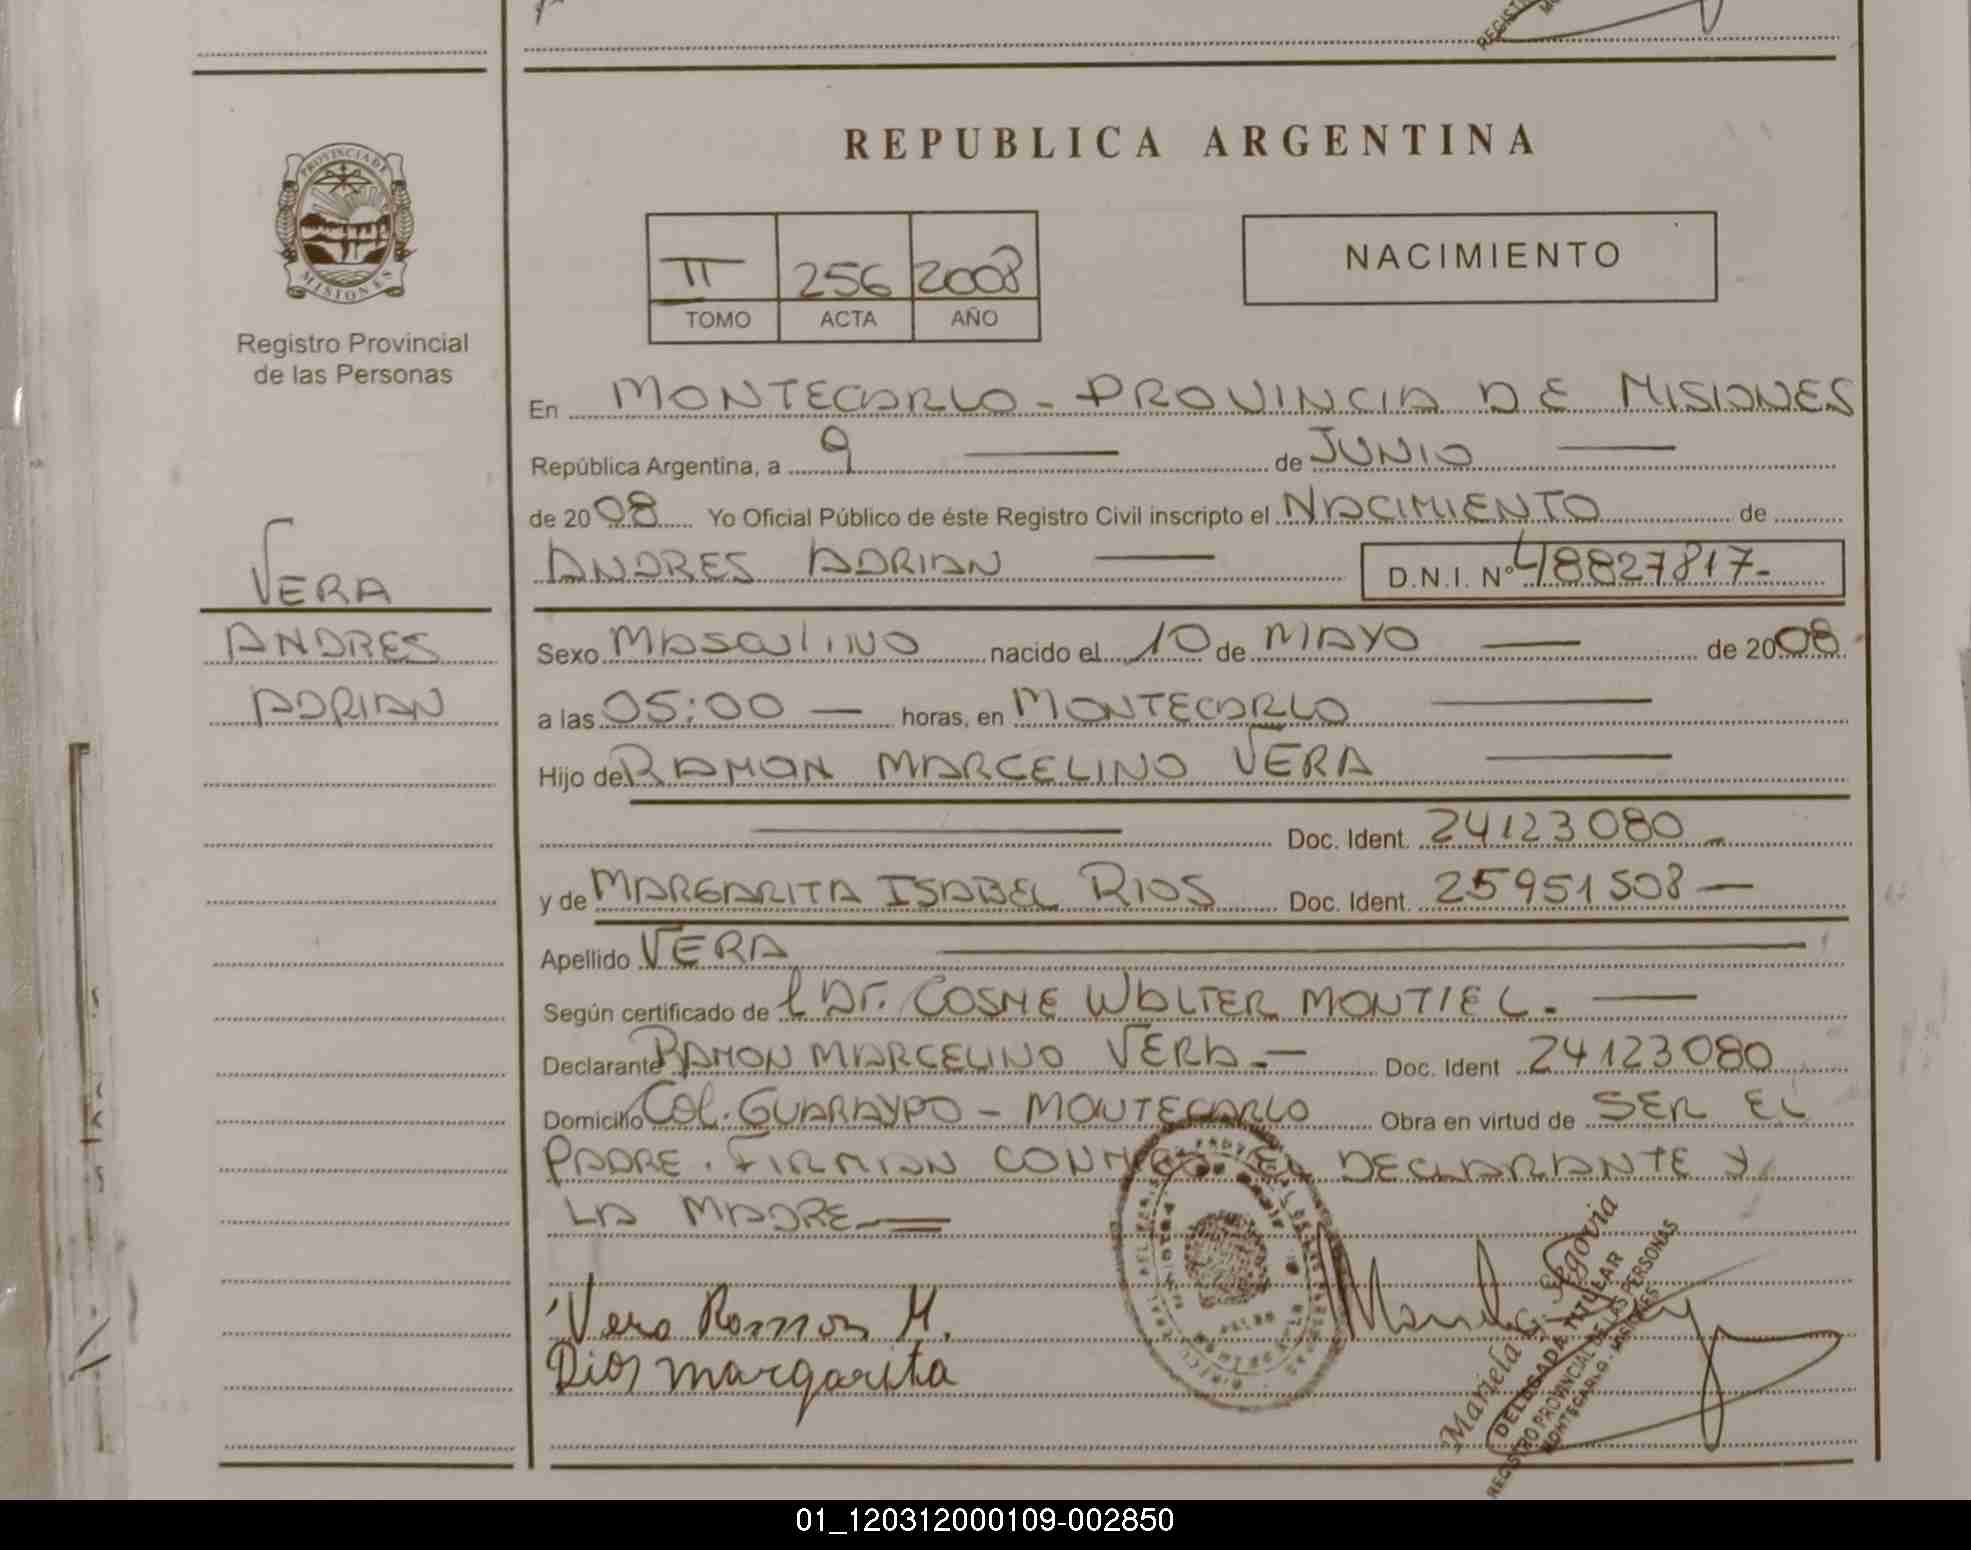 REPUBLICA ARGENTINA
PROVINCIA DE MISIONES
Registro Provincial
de las Personas
II 256 2008
TOMO ACTA AÑO
NACIMIENTO
En MONTECARLO - PROVINCIA DE MISIONES
República Argentina, a 9 de JUNIO
de 2008 Yo Oficial Público de éste Registro Civil inscripto el NACIMIENTO de
ANDRES ADRIAN D.N.I. Nº 48827817-
VERA
ANDRES
ADRIAN
Sexo MASCULINO nacido el 10 de MAYO de 2008
a las 05:00 horas, en MONTECARLO
Hijo de RAMON MARCELINO VERA
Doc. Ident. 24123080
y de MARGARITA ISABEL RIOS Doc. Ident. 25951508
Apellido VERA
Según certificado de l Dr. COSME WALTER MONTIEL.
Declarante RAMON MARCELINO VERA.- Doc. Ident 24123080
Domicilio COL. GUARAYPO - MONTECARLO Obra en virtud de SER EL
PADRE. FIRMAN CONMIGO EL DECLARANTE Y
LA MADRE
Vera Ramon M.
Rios margarita
Mariela G. Segovia
DELEGADA TITULAR
REGISTRO PROVINCIAL DE LAS PERSONAS
MONTECARLO - MISIONES
01_120312000109-002850